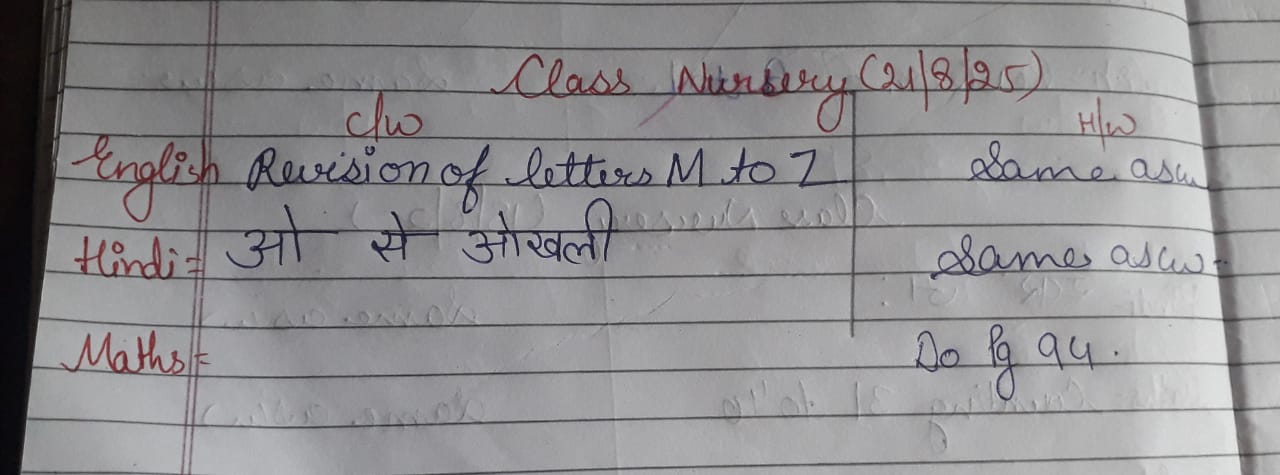 Class Nursery (21/8/25)
C/W H/W
English Revision of letters M to Z Same as cw
Hindi = ओ से ओखली Same as cw.
Maths = Do Pg 94.